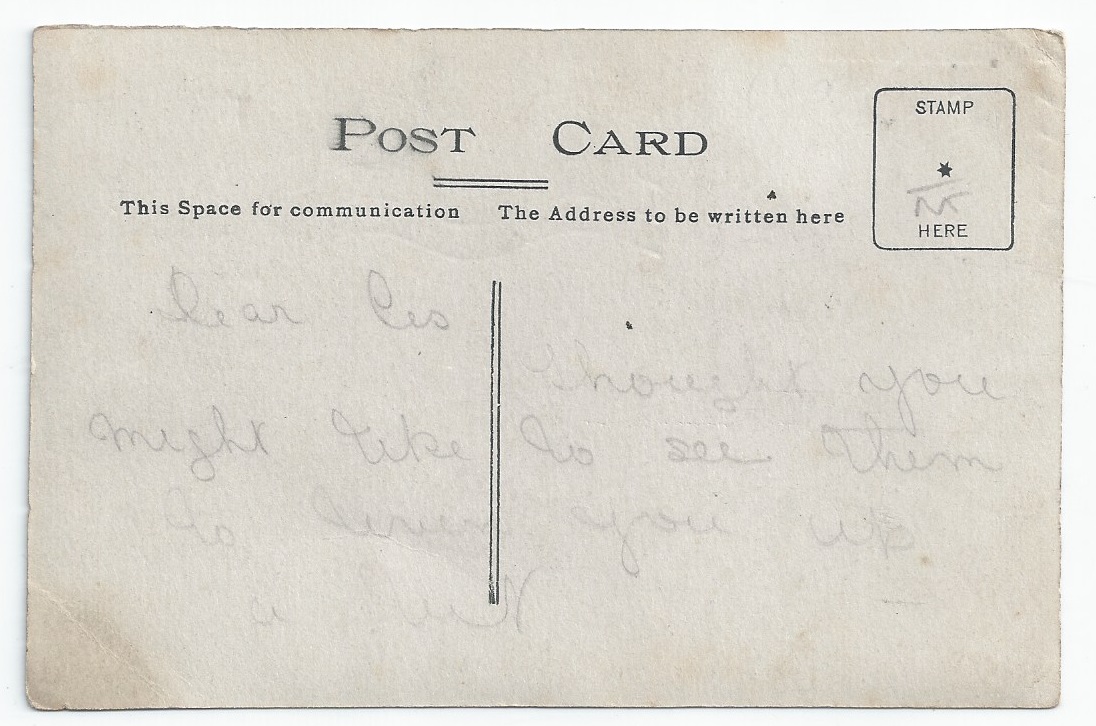 POST CARD
STAMP
HERE
This Space for communication
The Address to be written here
Dear Les
thought you
might like to see them
to liven you up
a